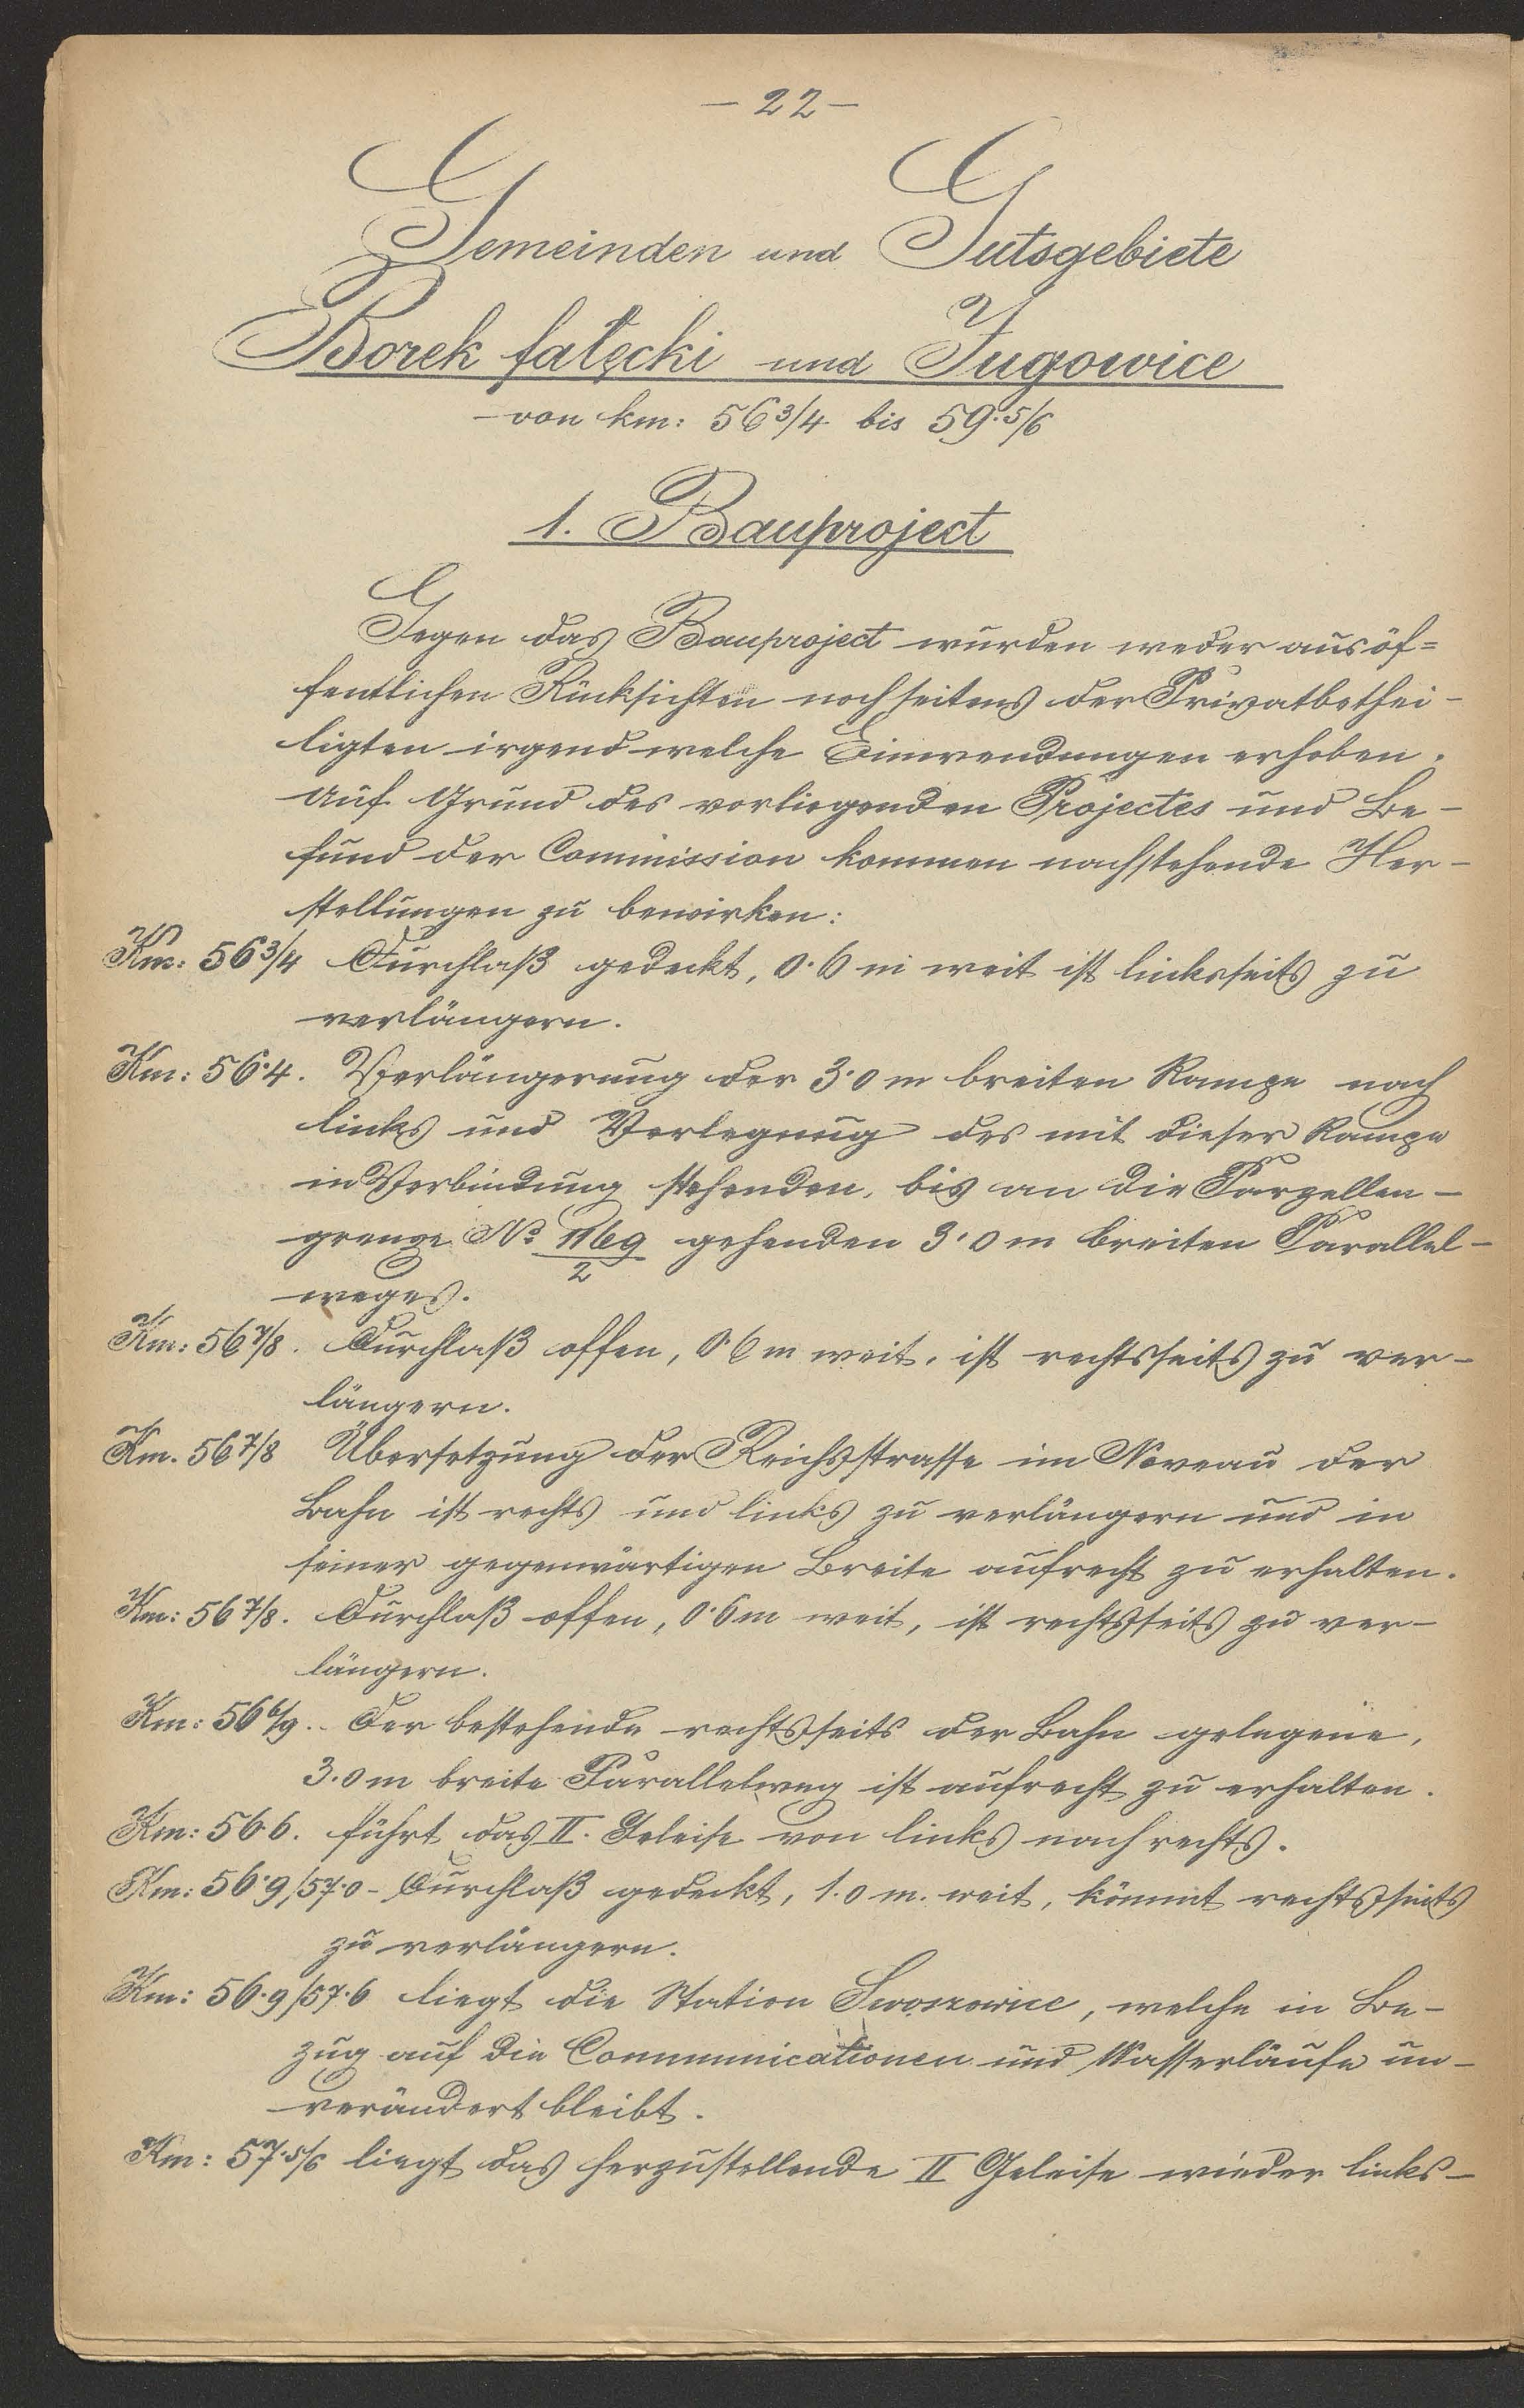 - 22 -
Gemeinden und Gutsgebiete
Borek fałęcki und Jugowice
- von km: 56 3/4 bis 59·5/6
1. Bauproject
Gegen das Bauproject wurden weder aus öf=
fentlichen Rücksichten noch seitens der Privatbethei-
ligten irgend welche Einwendungen erhoben.
Auf Grund des vorliegenden Projectes und Be-
fund der Commission kommen nachstehende Her-
stellungen zu bewirken:
Km: 56 3/4 Durchlaß gedeckt, 0·6 m weit ist linksseits zu
verlängern.
Km: 56·4. Verlängerung der 3·0 m breiten Rampe nach
links und Verlegung des mit dieser Rampe
in Verbindung stehenden, bis an die Parzellen-
grenze No 1169/2 gehenden 3·0 m breiten Parallel-
weges.
Km: 56 7/8. Durchlaß offen, 0·6 m weit, ist rechtsseits zu ver-
längern.
Km. 56 7/8 Übersetzung der Reichsstrasse im Niveau der
Bahn ist rechts und links zu verlängern und in
seiner gegenwärtigen Breite aufrecht zu erhalten.
Km: 56 7/8. Durchlaß offen, 0·6 m weit, ist rechtsseits zu ver-
längern.
Km: 56 6/9. Der bestehende rechtsseits der Bahn gelegene,
3.0 m breite Parallelweg ist aufrecht zu erhalten.
Km: 56·6. führt das II. Geleise von links nach rechts.
Km: 56·9/57·0 - Durchlaß gedeckt, 1.0 m. weit, kömmt rechtsseits
zu verlängern.
Km: 56·9/57·6 liegt die Station Swoszowice, welche in Be-
zug auf die Communicationen und Wasserläufe un-
verändert bleibt.
Km: 57·5/6 liegt das herzustellende II Geleise wieder links-